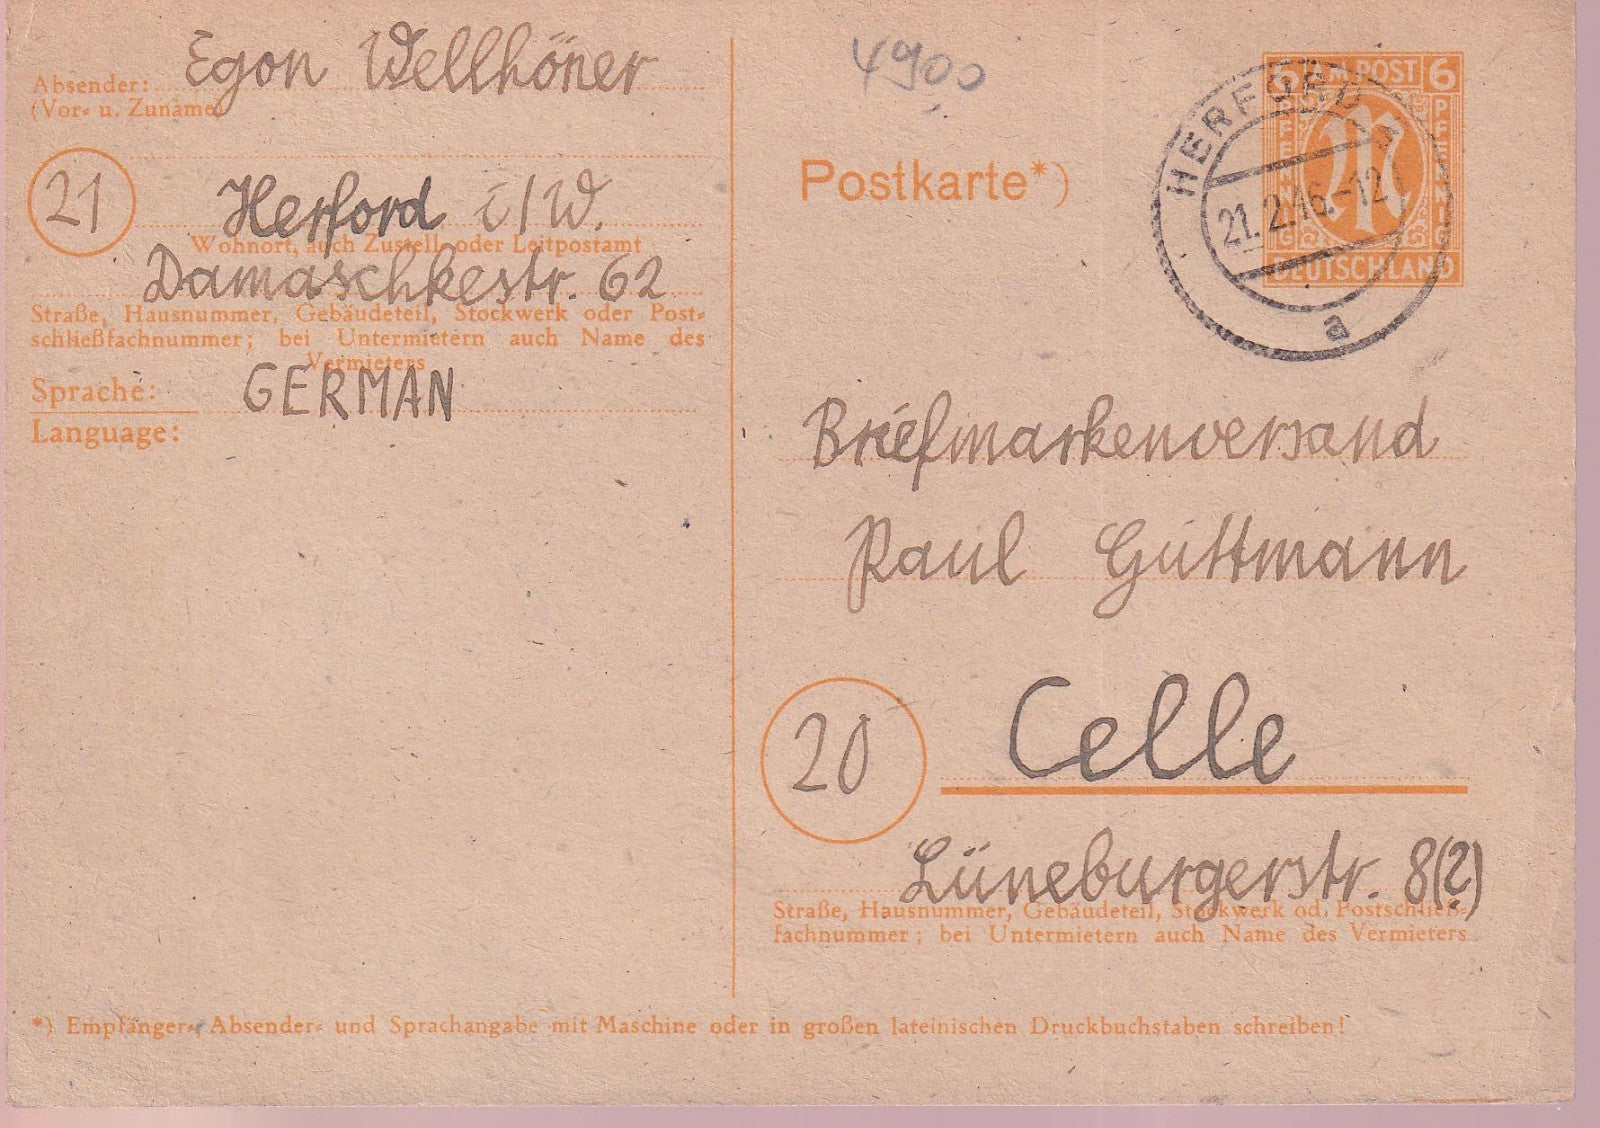 Absender: Egon Wellhöner
(Vor= u. Zuname)
21
Herford i/W.
Wohnort, auch Zustell= oder Leitpostamt
Damaschkestr. 62
Straße, Hausnummer, Gebäudeteil, Stockwerk oder Post=
schließfachnummer; bei Untermietern auch Name des
Vermieters
Sprache: GERMAN
Language:
4900
Postkarte*)
6 AM POST 6
PFENNIG
PFENNIG
M
DEUTSCHLAND
HERFORD
21. 2. 46.-12
a
Briefmarkenversand
Paul Guttmann
20
Celle
Lüneburgerstr. 8(?)
Straße, Hausnummer, Gebäudeteil, Stockwerk od. Postschließ=
fachnummer; bei Untermietern auch Name des Vermieters
*) Empfänger=, Absender= und Sprachangabe mit Maschine oder in großen lateinischen Druckbuchstaben schreiben!